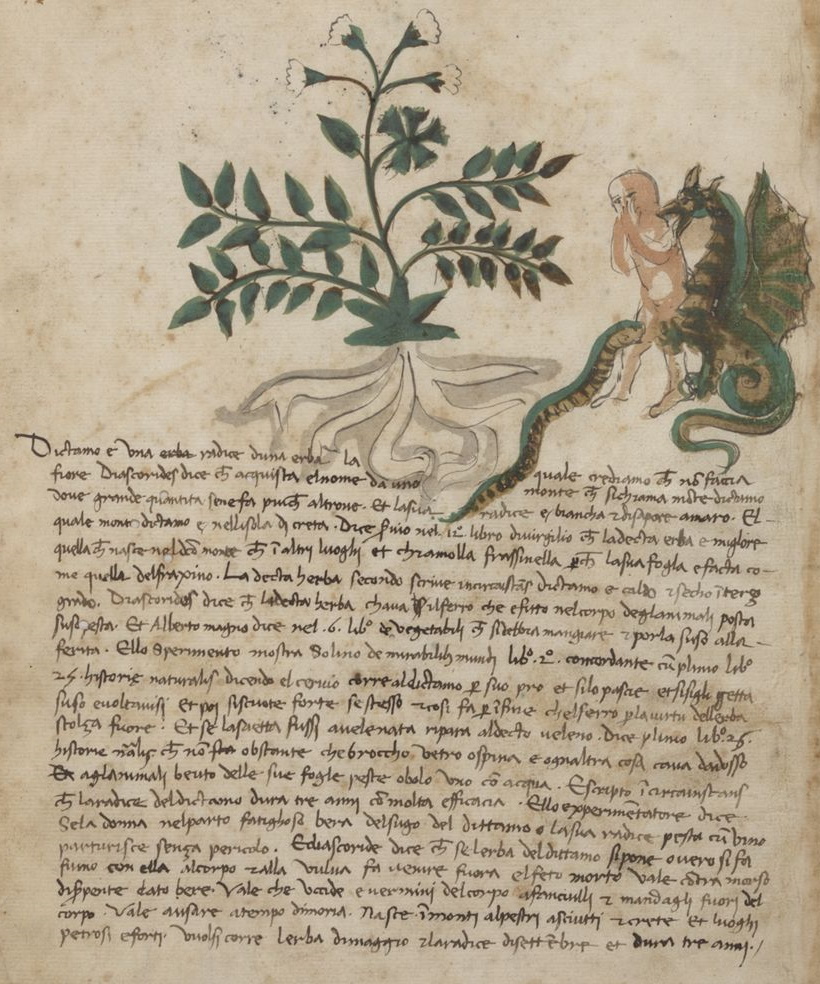 Dictamo e una erba radice duna erba la
fiore Diascorides dice cħ acquista el nome da uno quale crediamo cħ nō faccia
dove grande quantita sene fa piu cħ altrove. Et la sua monte cħ si chiama mōte dictamo
quale monte dictamo e nellisola di creta. Dice radice e biancha z di sapore amaro. El
nel 12° libro di virgilio cħ la decta erba e miglore
quella cħ nasce nel dco monte cħ ī altri luoghi et chiamolla frassinella p cħ la sua fogla e facta co-
me quella del fraxino. La decta herba secondo scrive incircaīstās dictamo e caldo z secho ī terzo
grado. Diascorides dice cħ la decta herba chava il ferro che e fitto nel corpo degl animali posta
suso pesta. Et Alberto magno dice nel .6. lib° de vegetabili cħ si debbra mangiare z porla suso alla
ferita. Ello sperimento mostra Solino de mirabilib mundi lib°. 2°. concordante cū plinio lib°
25. historie naturalis dicendo el cervio corre al dictamo p suo pro et silo pascie et si si gli getta
suso evoltavisi et poi si scuote forte se stesso z cosi fa p īsine chel ferro p la virtu dell erba
stolga fuore. Et se la saetta fussi avelenata ripara al decto veleno. Dice plinio lib° 26.
historie nālis cħ nō sta obstante che broccho vetro o spina e ogn altra cosa cava dadosso
agl animali beuto delle sue fogle peste obolo uno cō acqua. Escripto ī circuinstans
cħ la radice del dictamo dura tre anni cō molta efficacia. Ello experimētatore dice
Se la donna nel parto fatighosa bera del sugo del dittamo o la sua radice pesta cū vino
parturisce senza pericolo. E diascoride dice cħ se lerba del dittamo si pone overo si fa
fumo con ella al corpo z alla vulva fa venire fuora el feto morto vale cōtra morso
di serpente dato bere. Vale che uccide e vermini del corpo a fanciulli z mandagli fuori del
corpo. Vale ausare atempo dimoria. Nasce ī monti alpestri asciutti z crete et luoghi
petrosi e forti. vuolsi corre lerba di maggio z la radice di settēbre et dura tre anni./